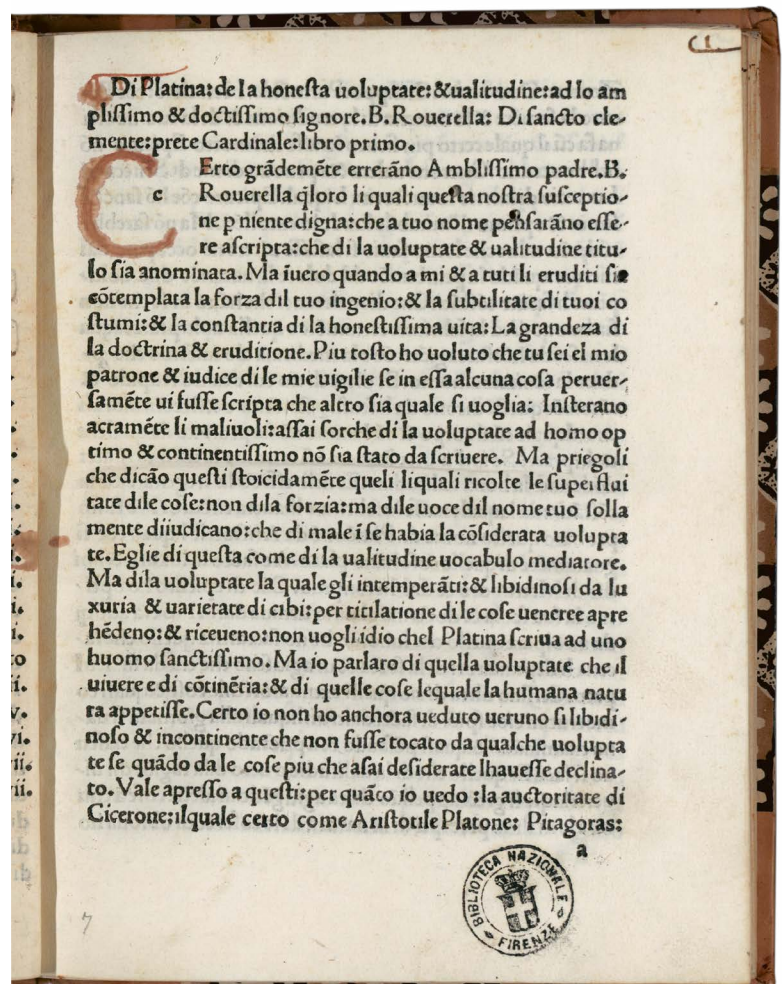 C I
Di Platina: de la honesta uoluptate: & ualitudine: ad lo am
plissimo & doctissimo signore. B. Rouerella: Di sancto cle-
mente: prete Cardinale: libro primo.
C Erto grādemēte errerāno Amblissimo padre. B.
c Rouerella q̄loro li quali questa nostra susceptio-
ne p niente digna: che a tuo nome pensarāno esse-
re ascripta: che di la uoluptate & ualitudine titu-
lo sia anominata. Ma īuero quando a mi & a tuti li eruditi sie
cōtemplata la forza dil tuo ingenio: & la subtilitate di tuoi co
stumi: & la constantia di la honestissima uita: La grandeza di
la doctrina & eruditione. Piu tosto ho uoluto che tu sei el mio
patrone & iudice di le mie uigilie se in essa alcuna cosa peruer-
samēte ui fusse scripta che altro sia quale si uoglia: Insterano
acramēte li maliuoli: assai forche di la uoluptate ad homo op
timo & continentissimo nō sia stato da scriuere. Ma priegoli
che dicāo questi stoicidamēte queli liquali ricolte le superflui
tate dile cose: non dila forzia: ma dile uoce dil nome tuo solla
mente diiudicano: che di male ī se habia la cōsiderata uolupta
te. Eglie di questa come di la ualitudine uocabulo mediatore.
Ma dila uoluptate la quale gli intemperāti: & libidinosi da lu
xuria & uarietate di cibi: per titilatione di le cose ueneree apre
hēdeno: & riceueno: non uogli idio chel Platina scriua ad uno
huomo sanctissimo. Ma io parlaro di quella uoluptate che il
uiuere e di cōtinētia: & di quelle cose lequale la humana natu
ra appetisse. Certo io non ho anchora ueduto ueruno si libidi-
noso & incontinente che non fusse tocato da qualche uolupta
te se quādo da le cose piu che asai desiderate lhauesse declina-
to. Vale apresso a questi: per quāto io uedo : la auctoritate di
Cicerone: ilquale certo come Aristotile Platone: Pitagoras:
a
BIBLIOTECA NAZIONALE
FIRENZE
7